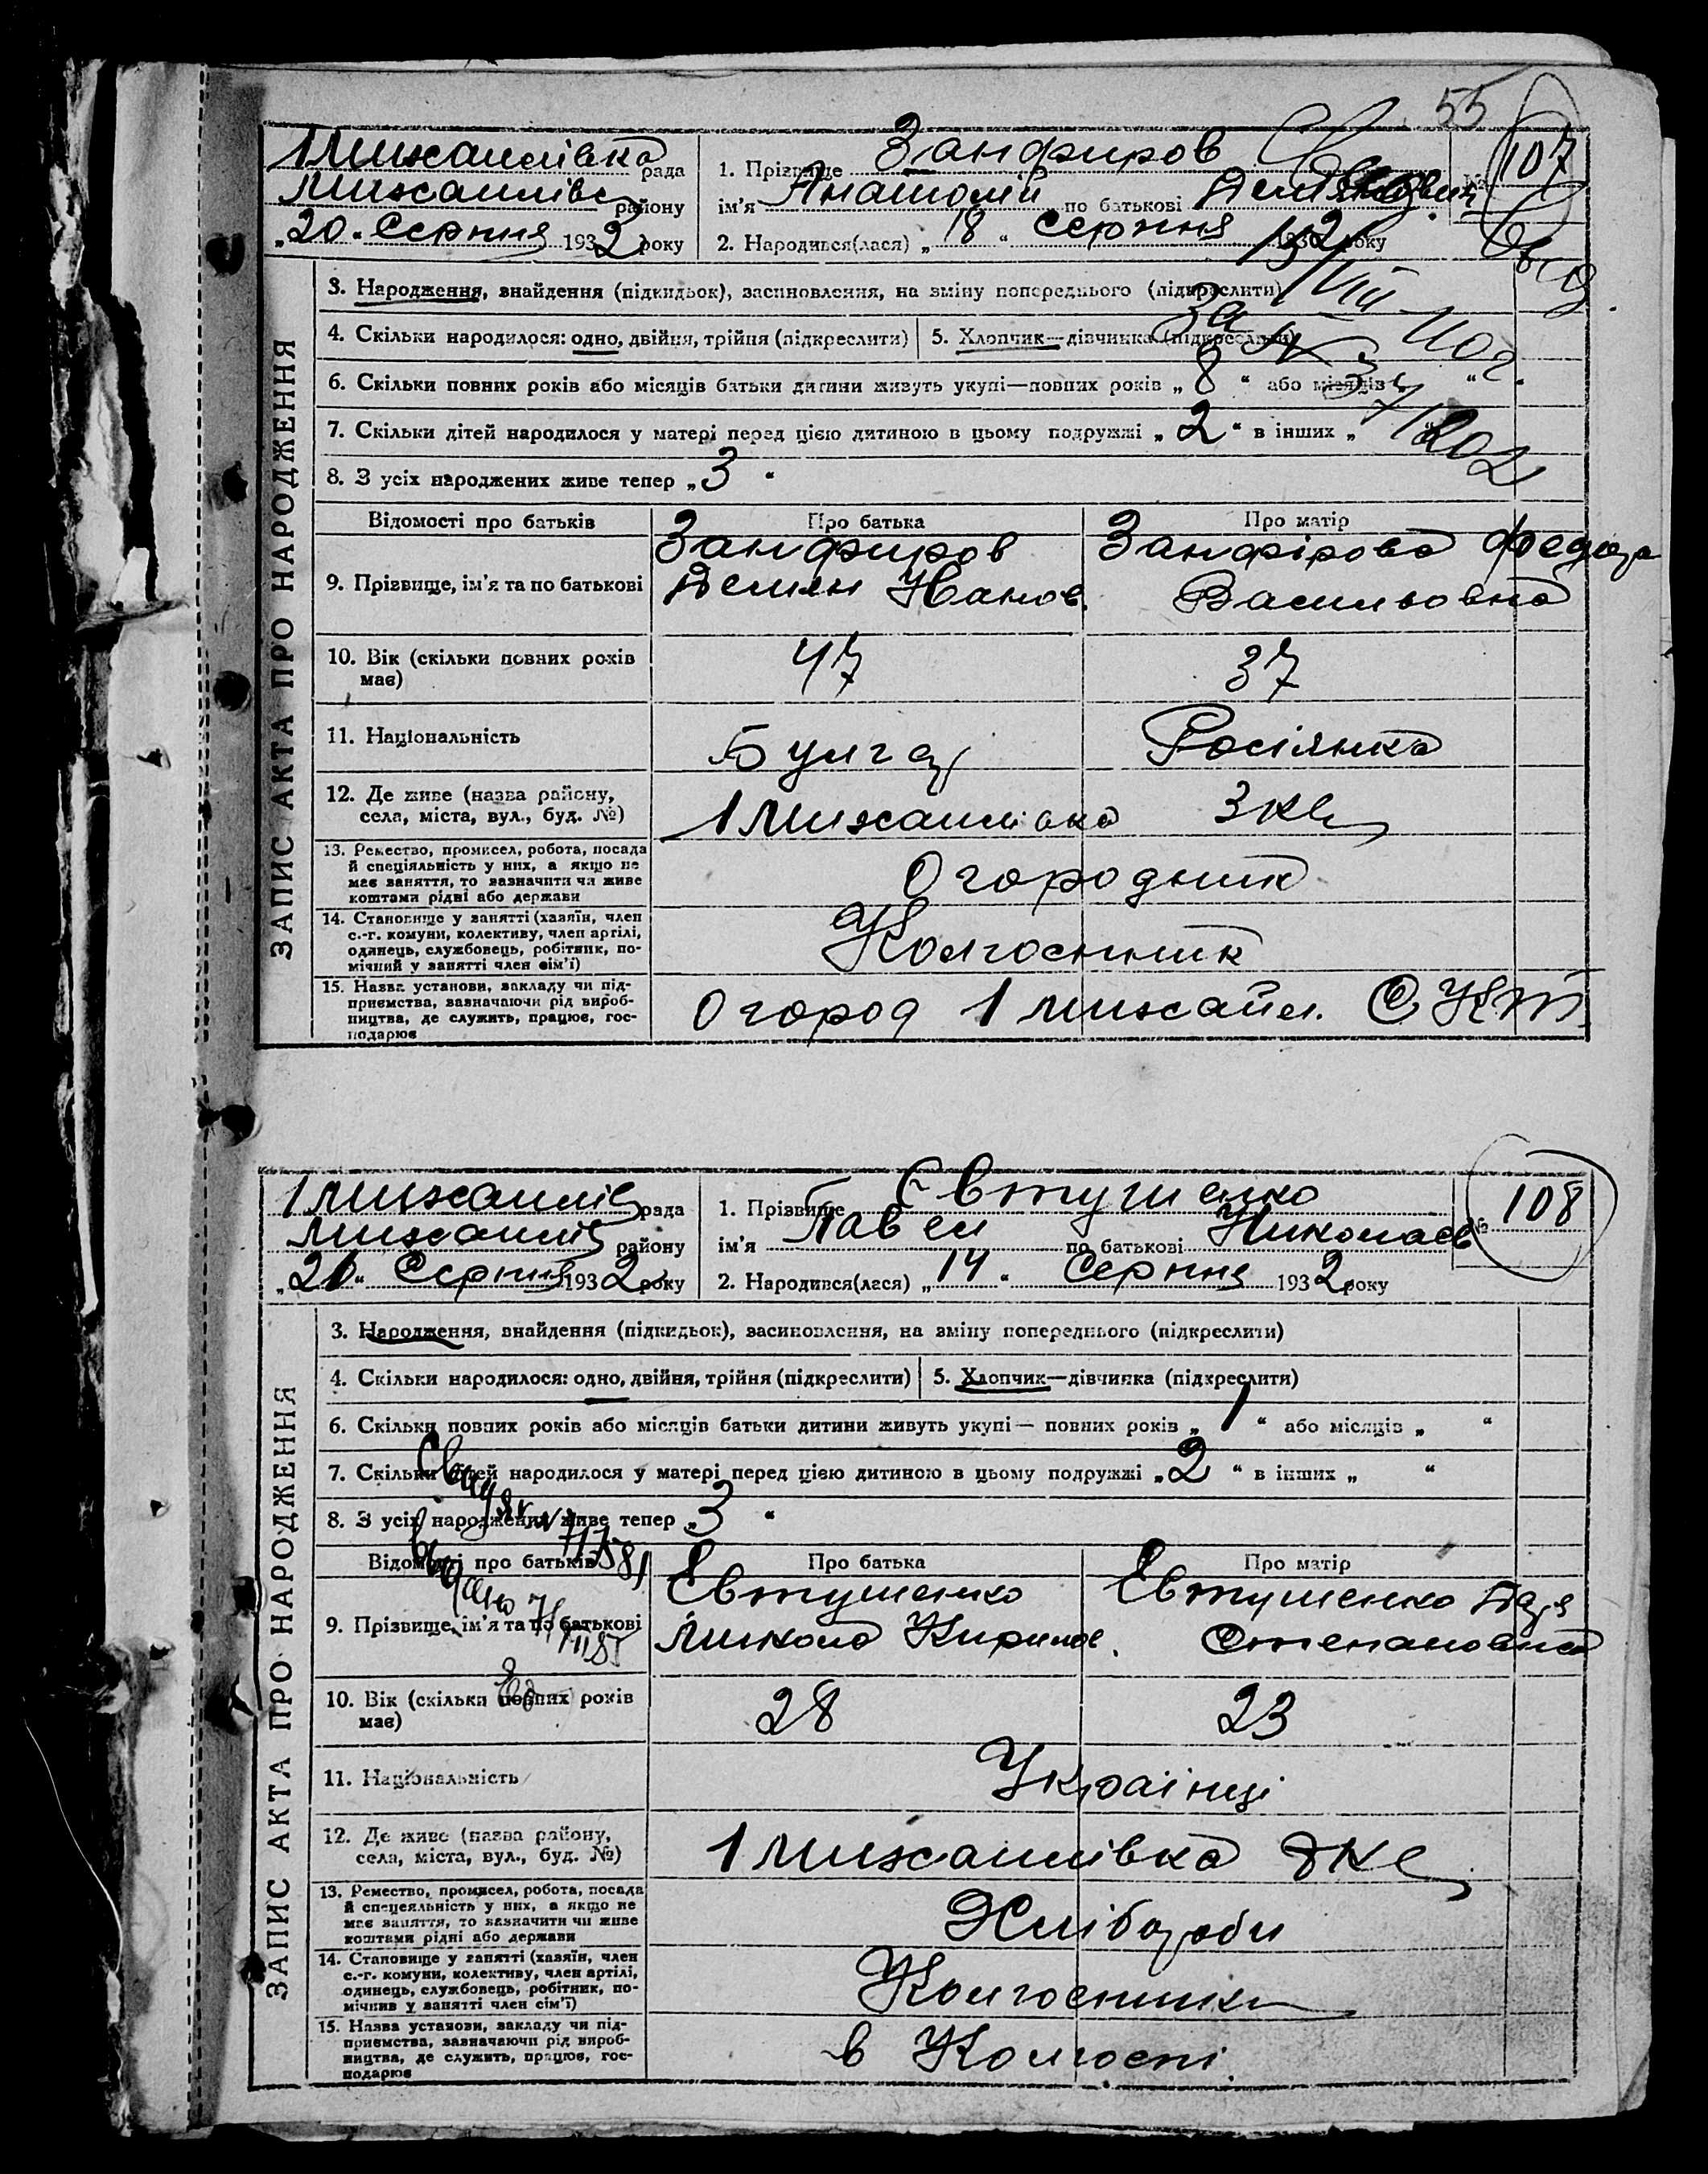 55
1 Михайлівка рада
Михайлівс району
„20“ Серпня 1932 року
1. Прізвище Занфиров
ім'я Анатолій по батькові Демянович
2. Народився(лася) „18“ Серпня 1932 року
№ 107
ЗАПИС АКТА ПРО НАРОДЖЕННЯ
3. Народження, внайдення (підкидьок), засиновлення, на зміну попереднього (підкреслити)
4. Скільки народилося: одно, двійня, трійня (підкреслити) 5. Хлопчик—дівчинка (підкреслити)
6. Скільки повних років або місяців батьки дитини живуть укупі—повних років „8“ або місяців „ “
7. Скільки дітей народилося у матері перед цією дитиною в цьому подружжі „2“ в інших „
8. З усіх народжених живе тепер „3“
Відомості про батьків Про батька Про матір
9. Прізвище, ім'я та по батькові
Занфиров Занфірова
Демян Иванов. Васильовна
10. Вік (скільки повних років має) 47 37
11. Національність Булгар Росіянка
12. Де живе (назва району, села, міста, вул., буд. №) 1 Михайлівка
13. Ремество, промисел, робота, посада
й спеціяльність у них, а якщо не
має заняття, то зазначити чи живе
коштами рідні або держави
Огородник
14. Становище у занятті (хазяїн, член
с.-г. комуни, колективу, член артілі,
одинець, службовець, робітник, по-
мічний у занятті член сім'ї)
Колгоспник
15. Назва установи, закладу чи під-
приємства, зазначаючи рід вироб-
ництва, де служить, працює, гос-
подарює
Огород 1 Михайл.
1 Михайлів рада
Михайлів району
1932 року
1. Прізвище Євтушенко
ім'я Павел по батькові Николаєв
2. Народився(лася) „14“ Серпня 1932 року
№ 108
ЗАПИС АКТА ПРО НАРОДЖЕННЯ
3. Народження, внайдення (підкидьок), засиновлення, на зміну попереднього (підкреслити)
4. Скільки народилося: одно, двійня, трійня (підкреслити) 5. Хлопчик—дівчинка (підкреслити)
6. Скільки повних років або місяців батьки дитини живуть укупі— повних років „1“ або місяців „ “
7. Скільки дітей народилося у матері перед цією дитиною в цьому подружжі „2“ в інших „ “
8. З усіх народжених живе тепер „3“
Відомості про батьків Про батька Про матір
9. Прізвище, ім'я та по батькові
Євтушенко Євтушенко
Микола Кирилов. Степановна
10. Вік (скільки повних років має) 28 23
11. Національність Українці
12. Де живе (назва району, села, міста, вул., буд. №) 1 Михайлівка
13. Ремество, промисел, робота, посада
й спецеяльність у них, а якщо не
має заняття, то зазначити чи живе
коштами рідні або держави
Хлібороби
14. Становище у занятті (хазяїн, член
с.-г. комуни, колективу, член артілі,
одинець, службовець, робітник, по-
мічнив у занятті член сім'ї)
Колгоспники
15. Назва установи, закладу чи під-
приємства, зазначаючи рід вироб-
ництва, де служить, працює, гос-
подарює
в Колгоспі